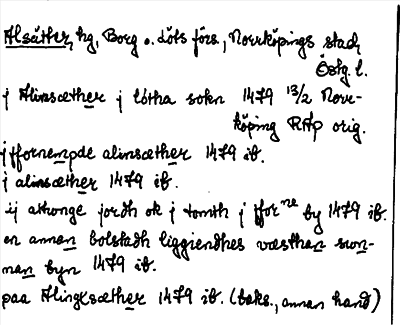 Alsäter, hg, Borg o. Löts förs., Norrköpings stad,
Östg. l.
j Alinsæther j lótha sokn 1479 13/2 Norr-
köping RAp orig.
j ffornempde alinsæther 1479 ib.
j alinsæther 1479 ib.
ij athonge jordh ok j tomth j ffor ne by 1479 ib.
en annan bolstadh liggiendhes væsthan
nan byn 1479 ib.
paa Alingxsæther 1479 ib. (baks., annan hand)